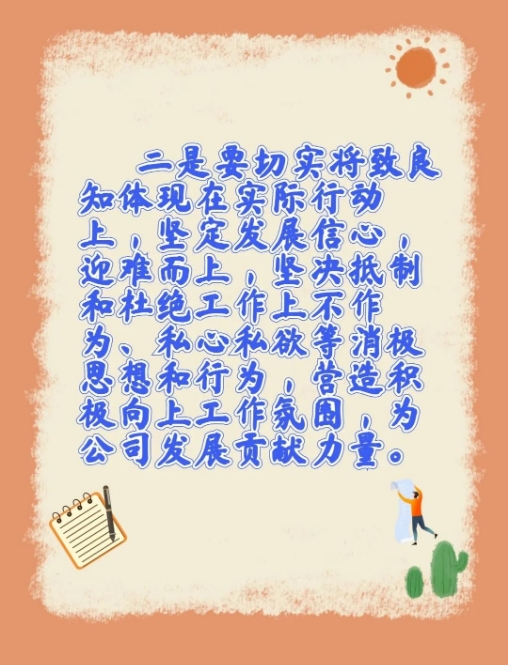 二是要切实将致良
知体现在实际行动
上，坚定发展信心，
迎难而上，坚决抵制
和杜绝工作上不作
为、私心私欲等消极
思想和行为，营造积
极向上工作氛围，为
公司发展贡献力量。